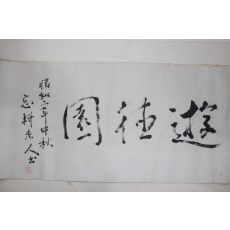 遊徳園
昭和六年中秋
忘軒老人書